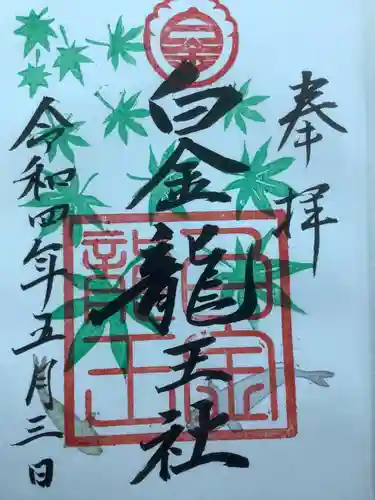 奉拝
白金龍王社
令和四年五月三日